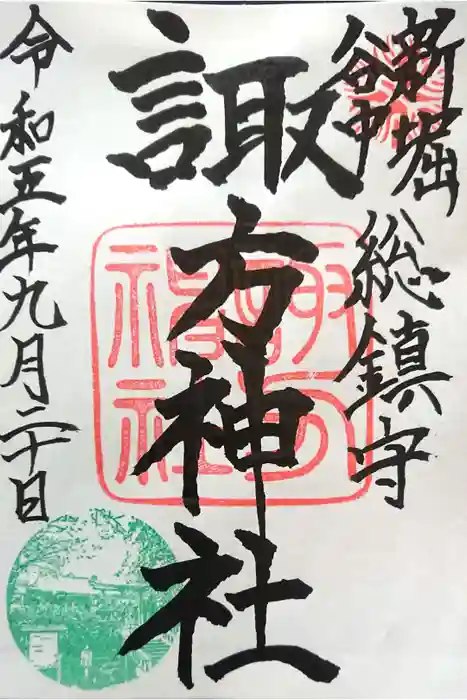 新堀
谷中
総鎮守
諏方神社
諏方神社
令和五年九月二十日